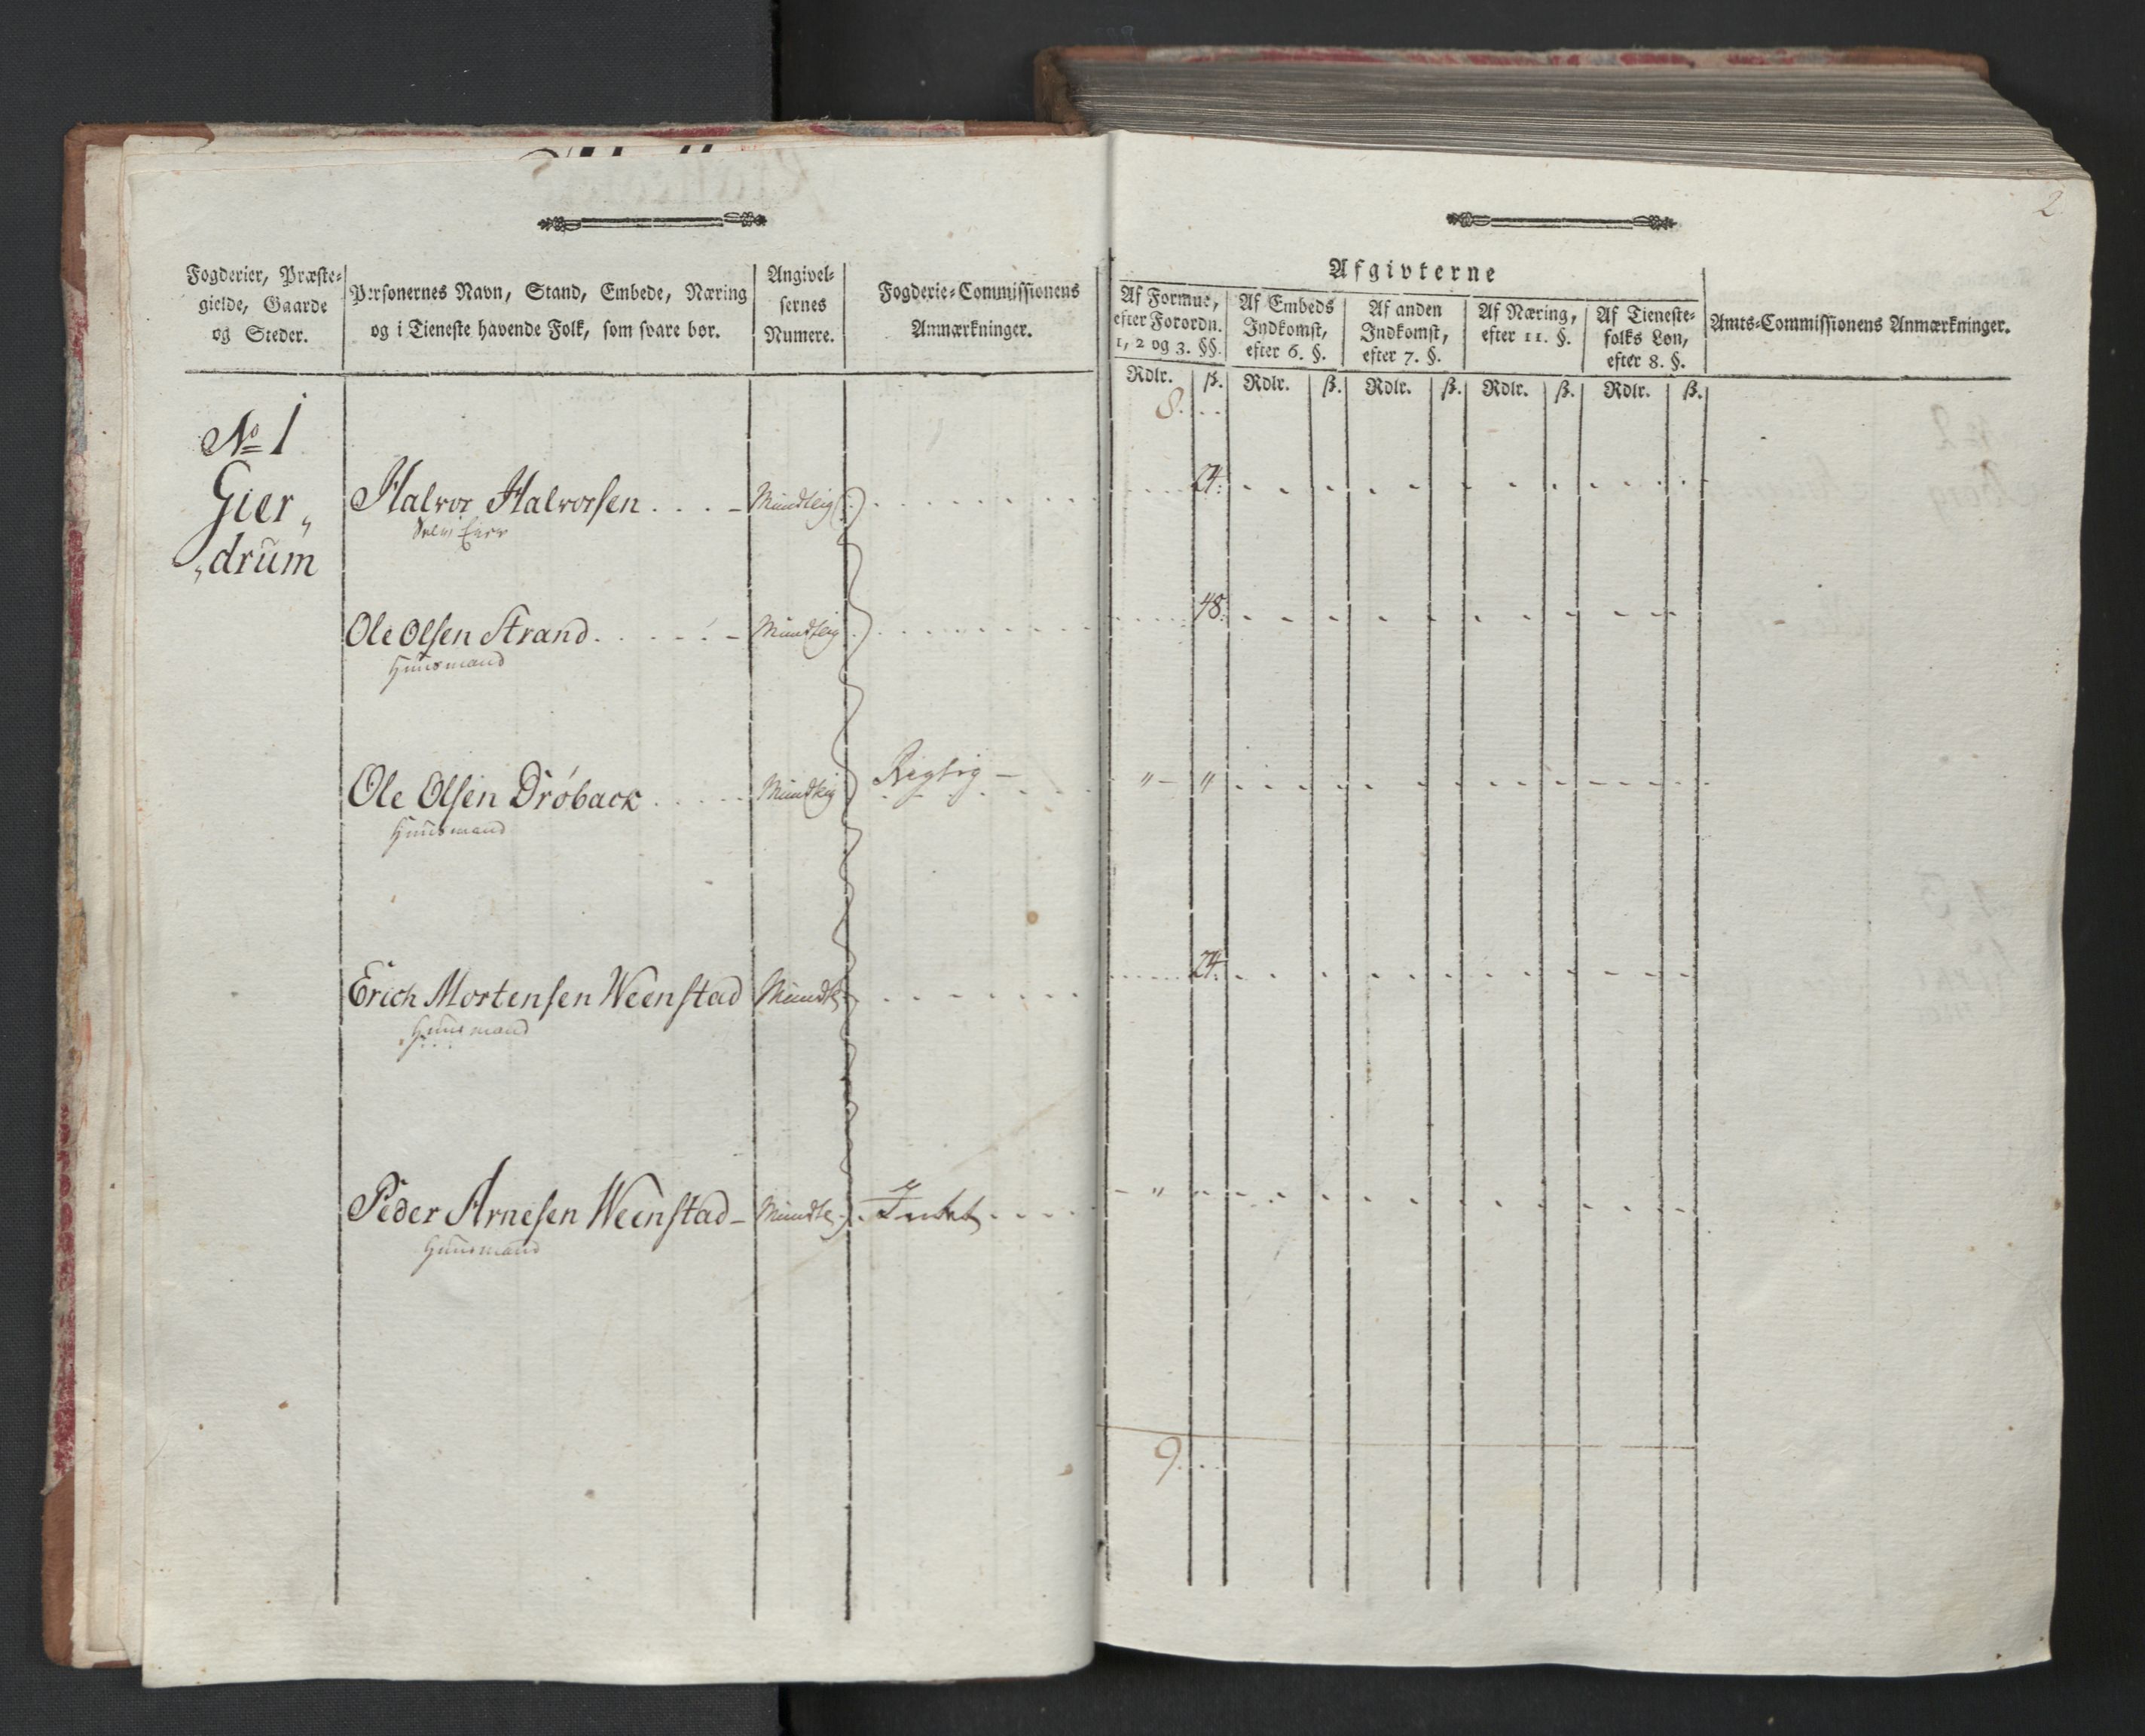 2
Fogderier, Præste-
gielde, Gaarde
og Steder.
Personernes Navn, Stand, Embede, Næring
og i Tieneste havende Folk, som svare bør.
Angivel-
sernes
Numere.
Fogderie-Commissionens
Anmærkninger.
Afgivterne
Af Formue,
efter Forordn.
1, 2 og 3. §§.
Af Embeds
Indkomst,
efter 6. §.
Af anden
Indkomst,
efter 7. §.
Af Næring,
efter 11. §.
Af Tieneste-
folks Løn,
efter 8. §.
Amts-Commissionens Anmærkninger.
Rdlr. ß. Rdlr. ß. Rdlr. ß. Rdlr. ß. Rdlr. ß.
8.
No 1
Gier„
„drum
Halvor Halvorsen Mundtlig 24.
Selv Eier
Ole Olsen Strand Mundtlig 48.
Huusmand
Ole Olsen Drøback Mundtlig Rigtig — „ — „
Huusmand
Erich Mortensen Weenstad Mundtl 24.
Huusmand
Peder Arnesen Weenstad Mundtl Intet „
Huusmand
9.